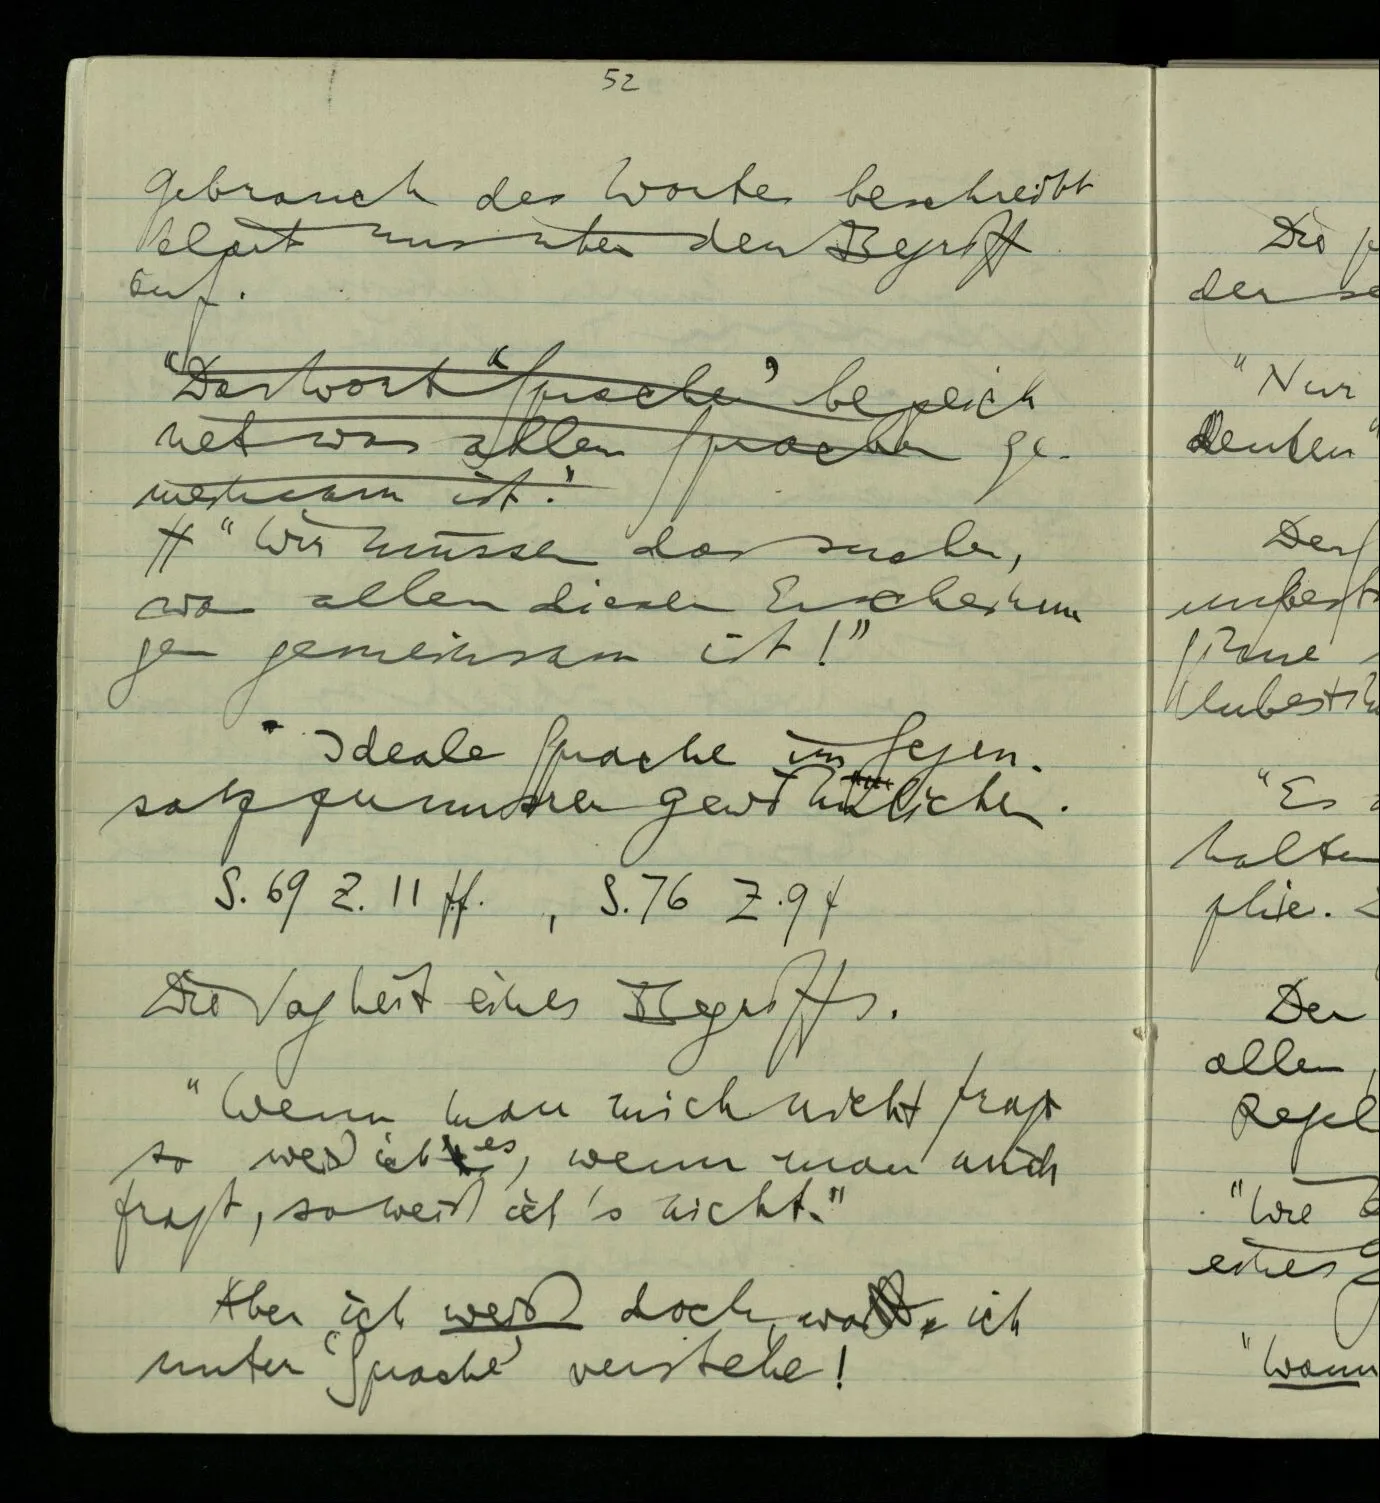 52
gebrauch des Wortes beschreibt
klärt uns über den Begriff
auf.
"Das Wort "Sprache' bezeich
net was allen Sprachen ge-
meinsam ist."
"Wir müssen das suchen,
was allen diesen Erscheinun
gen gemeinsam ist!"
Ideale Sprache im Gegen-
satz zu unserer gewöhnlichen.
S. 69 Z. 11 ff. , S. 76 Z. 9 f
Die Vagheit eines Begriffs.
"Wenn man mich nicht fragt
so weiß ich es, wenn man mich
fragt, so weiß ich's nicht."
Aber ich weiß doch, was ich
unter 'Sprache' verstehe!
Die
der
"Nur
deuten"
Der
"Es
halten
phie.
Der
allen
Regel
"Wie
eines
"Wann